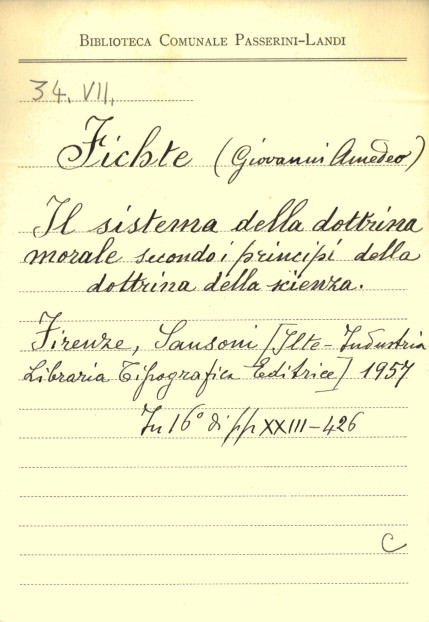 BIBLIOTECA COMUNALE PASSERINI-LANDI
34. VII.
Fichte (Giovanni Amedeo)
Il sistema della dottrina
morale secondo i principi della
dottrina della scienza.
Firenze, Sansoni [Ilte-Industria
Libraria Tipografica Editrice] 1957
In 16° di pp XXIII-426
C